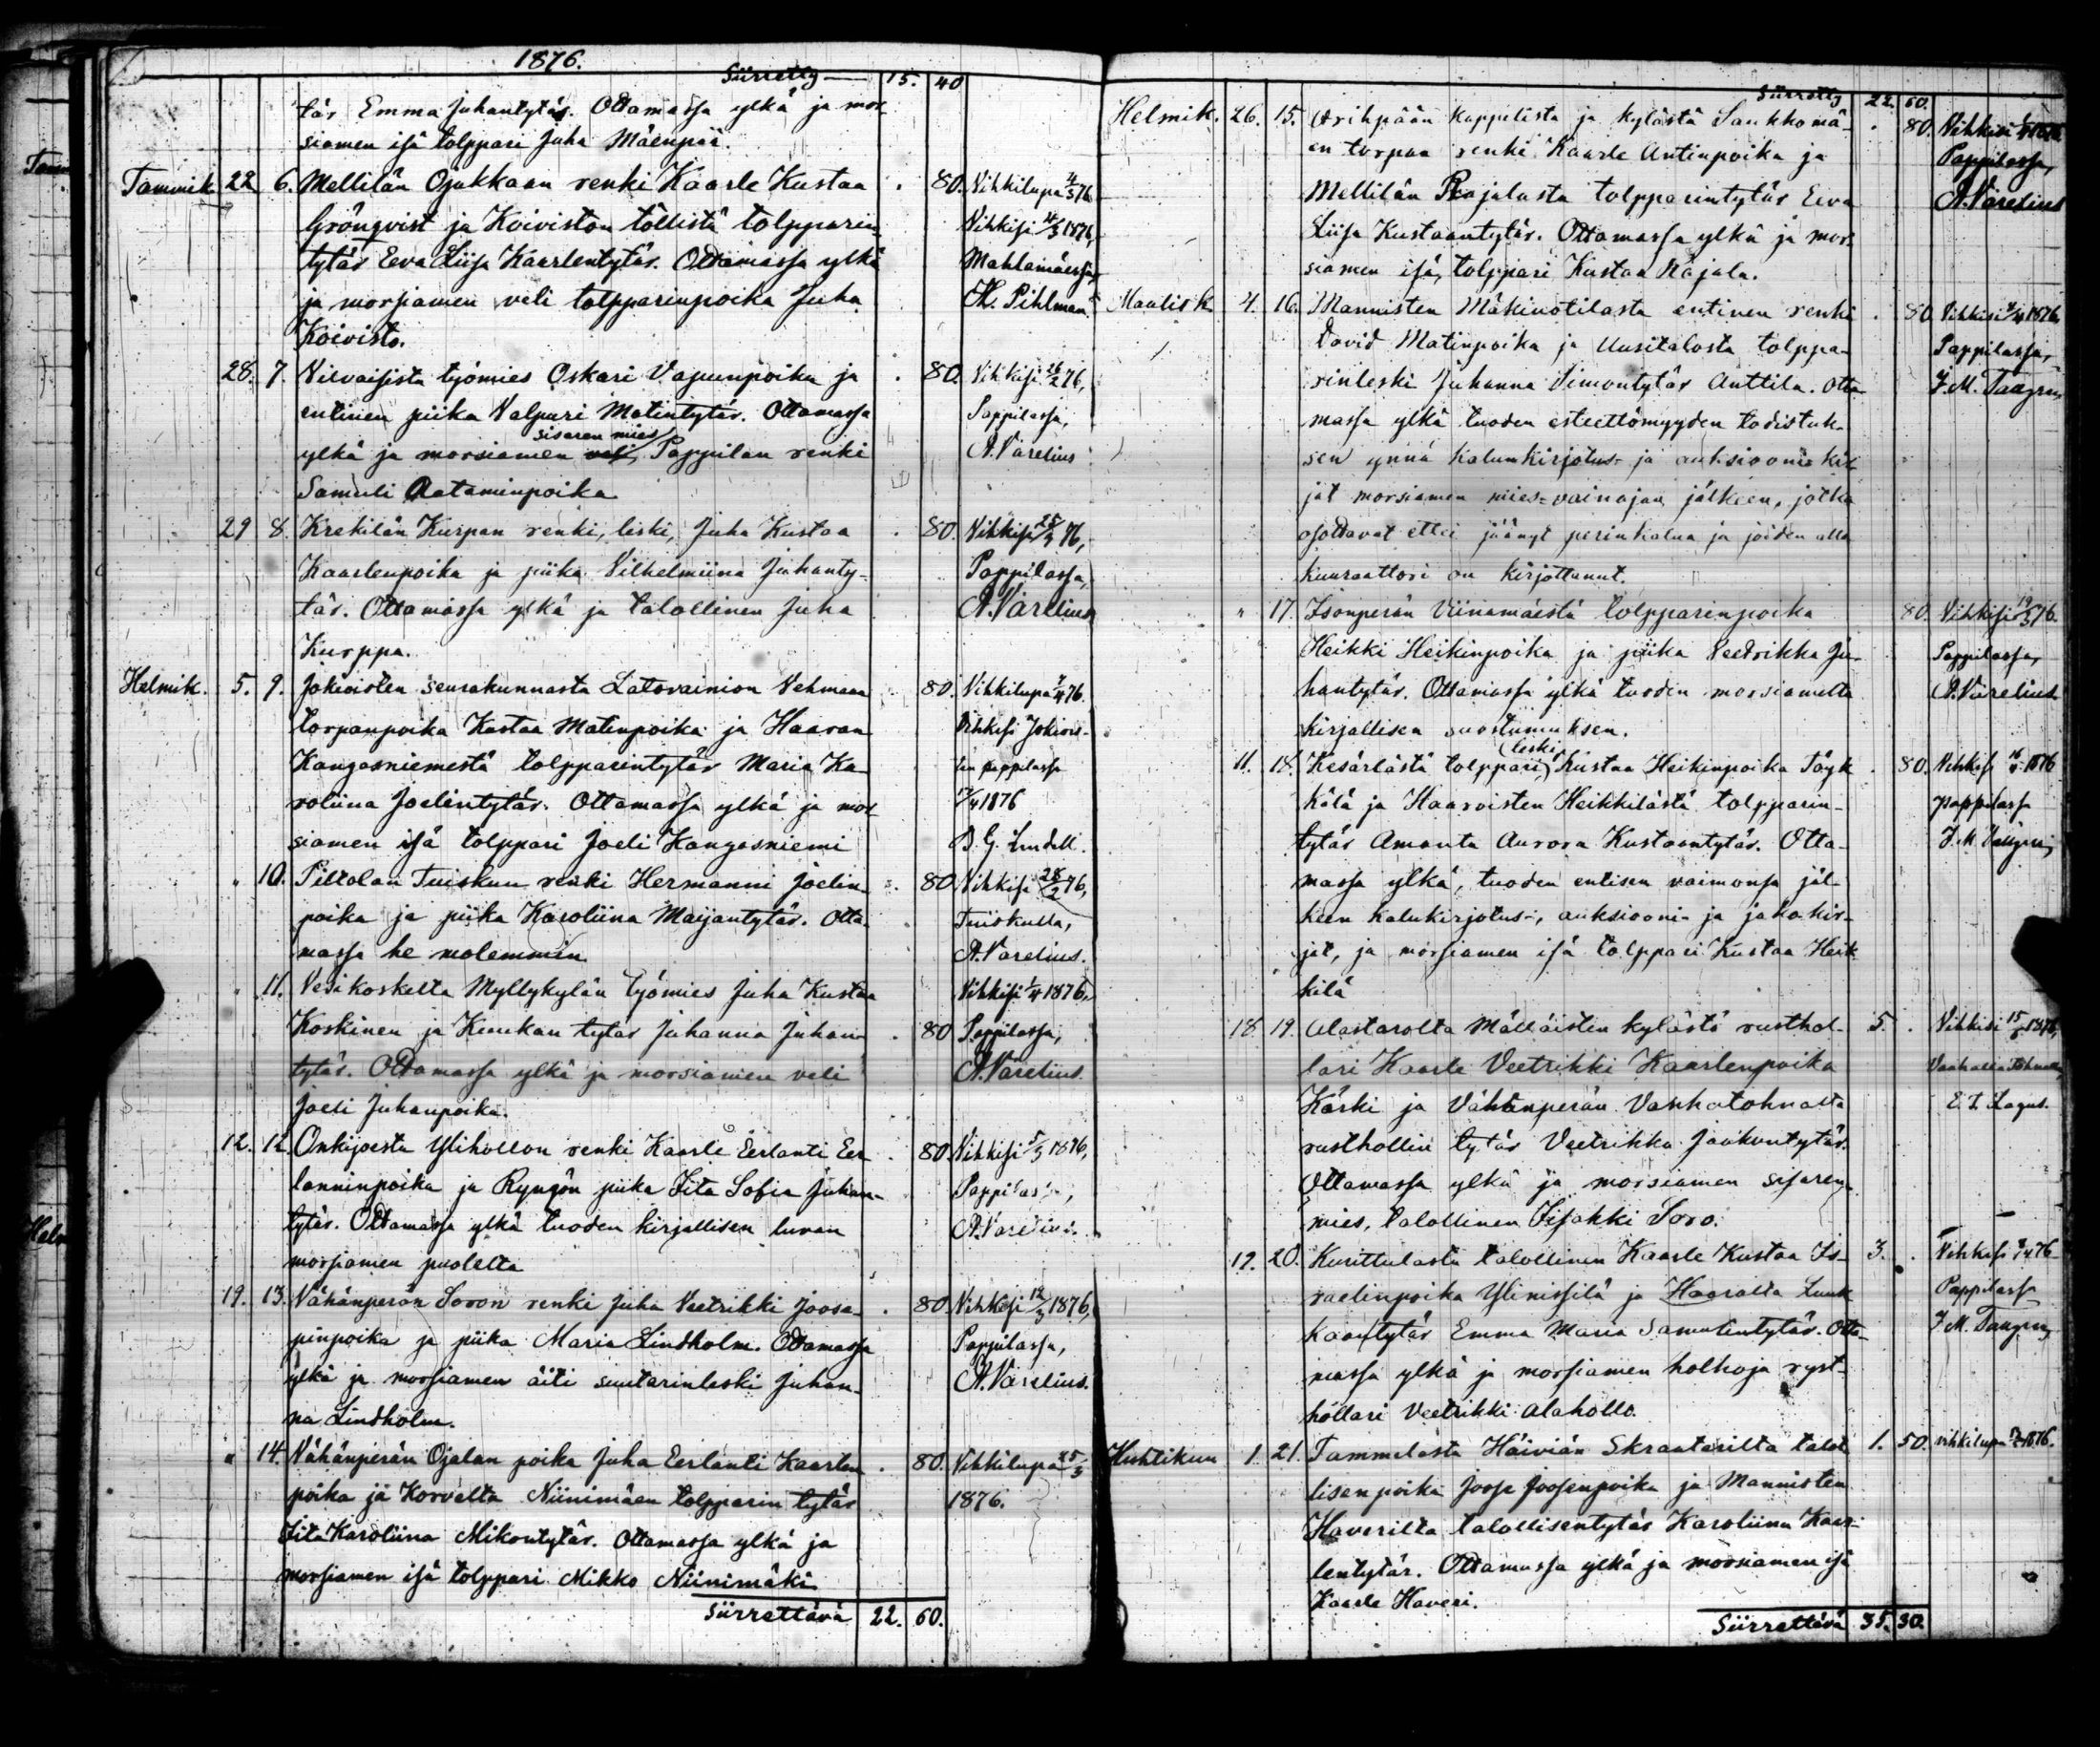 1876.
Siirretty 15. 40
tär Emma Juhantytär. Ottamassa ylkä ja mor
siamen isä tolppari Juha Mäenpää.
Tammik 22 6. Mellilän Ojukkaan renki Kaarle Kustaa . 80. Vihkilupa 4/3 76
Grönqvist ja Koiviston töllistä tolpparin Vihkisi 4/3 1876,
tytär Eeva Liisa Kaarlentytär. Ottamassa ylkä Mahlamäessä,
ja morsiamen veli tolpparinpoika Juha K. Pihlman.
Koivisto.
28. 7. Vilvaisista työmies Oskari Vapunpoika ja . 80. Vihkisi 26/2 76,
entinen piika Valpuri Matintytär. Ottamassa Pappilassa,
sisaren mies
ylkä ja morsiamen Pappilan renki A. Varelius
Samuli Aataminpoika
29 8. Krekilän Kurpan renki, leski, Juha Kustaa . 80. Vihkisi 25/3 76,
Kaarlenpoika ja piika Vilhelmiina Juhanty- Pappilassa,
tär. Ottamassa ylkä ja talollinen Juha A. Varelius
Kurppa.
Helmik. 5. 9. Jokioisten seurakunnasta Latovainion Vehmaan 80. Vihkilupa 76.
torpanpoika Kustaa Matinpoika ja Haaran Vihkisi Jokiois-
Kangasniemestä tolpparintytär Maria Ka- ten pappilassa
roliina Joelintytär. Ottamassa ylkä ja mor 1876
siamen isä tolppari Joeli Kangasniemi B. G. Lindell.
" 10. Piltolan Tuiskun renki Hermanni Joelin . 80 Vihkisi 28/2 76,
poika ja piika Karoliina Maijantytär. Otta Tuiskulla,
massa he molemmin A. Varelius.
" 11. Vesikoskelta Myllykylän työmies Juha Kustaa Vihkisi 1/4 1876,
Koskinen ja Kuukan tytär Juhanna Juhan . 80 Pappilassa,
tytär. Ottamassa ylkä ja morsiamen veli A. Varelius.
Joeli Juhanpoika.
12. 12. Onkijoesta Ylihollon renki Kaarle Eerlanti Eer . 80. Vihkisi 5/3 1876,
lanninpoika ja Ryngön piika Iita Sofia Juhan- Pappilassa,
tytär. Ottamassa ylkä tuoden kirjallisen luvan A. Varelius.
morsiamen puolelta
19. 13. Vähänperän Soron renki Juha Veetrikki Joose- . 80 Vihkisi 12/3 1876,
pinpoika ja piika Maria Lindholm. Ottamassa Pappilassa,
ylkä ja morsiamen äiti suutarinleski Juhan- A. Varelius.
na Lindholm.
" 14. Vähänperän Ojalan poika Juha Eerlanti Kaarlen . 80. Vihkilupa 25/3
poika ja Korvelta Niinimäen tolpparin tytär 1876.
Iita Karoliina Mikontytär. Ottamassa ylkä ja
morsiamen isä tolppari Mikko Niinimäki
Siirrettävä 22. 60.
Siirretty 22. 60.
Helmik. 26. 15. Orihpään kappelista ja kylästä Saukkomä- . 80. Vihkisi
en torpan renki Kaarle Antinpoika ja Pappilassa,
Mellilän Rajalasta tolpparintytär Eeva A. Varelius
Liisa Kustaantytär. Ottamassa ylkä ja mor
siamen isä, tolppari Kustaa Rajala.
Maalisk. 4. 16. Mannisten Mäkinotilasta entinen renki . 80 Vihkisi 1876,
David Matinpoika ja Uusitalosta tolppa- Pappilassa,
rinleski Juhanna Simontytär Anttila. Otta J. M. Tangren
massa ylkä tuoden esteettömyyden todistuk-
sen ynnä kalunkirjotus- ja auksioonia kir
jat morsiamen mies-vainajan jälkeen, jotka
osottavat ettei jäänyt perinkalua ja joiden alla
kuuraattori on kirjottanut.
" 17. Isonperän Viinamäestä tolpparinpoika 80. Vihkisi 19/3 76.
Heikki Heikinpoika ja piika Veedrikka Ju- Pappilassa,
hantytär. Ottamassa ylkä tuoden morsiamelta A. Varelius
kirjallisen suostumuksen.
(leski)
11. 18. Kesärlästä tolppari Kustaa Heikinpoika Töyk . 80. Vihkisi 16/4 1876
kälä ja Haaroisten Heikkilästä tolpparin- pappilassa
tytär Amanta Aurora Kustaantytär. Otta- J. M. Tangren
massa ylkä, tuoden entisen vaimonsa jäl-
keen kalukirjotus-, auksiooni- ja jakokir-
jat, ja morsiamen isä tolppari Kustaa Heik
kilä
18. 19. Alastarolta Mälläisten kylästä rusthol- 5. . Vihkisi 15/6 1876,
lari Kaarle Veetrikki Kaarlenpoika Vanhalla Tohmalla,
Käski ja Vähänperän Vanhatohmalta E. I. Lagus.
rusthollin tytär Veetrikka Jaakontytär.
Ottamassa ylkä ja morsiamen sisaren
mies, talollinen Iisakki Soro.
19. 20. Kurittulasta talollinen Kaarle Kustaa Is- 3. . Vihkisi 76
raelinpoika Ylinissilä ja Haaralta Luuk Pappilassa
kaantytär Emma Maria Samulintytär. Otta- J. M. Tangren
massa ylkä ja morsiamen holhoja ryst-
höllari Veetrikki Alahollo.
Huhtikuu 1. 21. Tammelasta Häiviän Skraatarilta talol 1. 50. vihkilupa 1876.
lisenpoika Joose Joosenpoika ja Mannisten
Haverilta talollisentytär Karoliina Kaar-
lentytär. Ottamassa ylkä ja morsiamen isä
Kaarle Haveri.
Siirrettävä 35. 30.